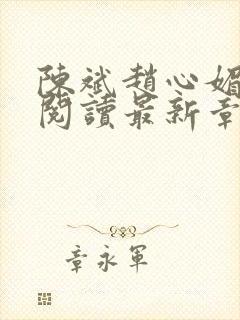 陳斌趙心媚
閱讀最新章
章永軍